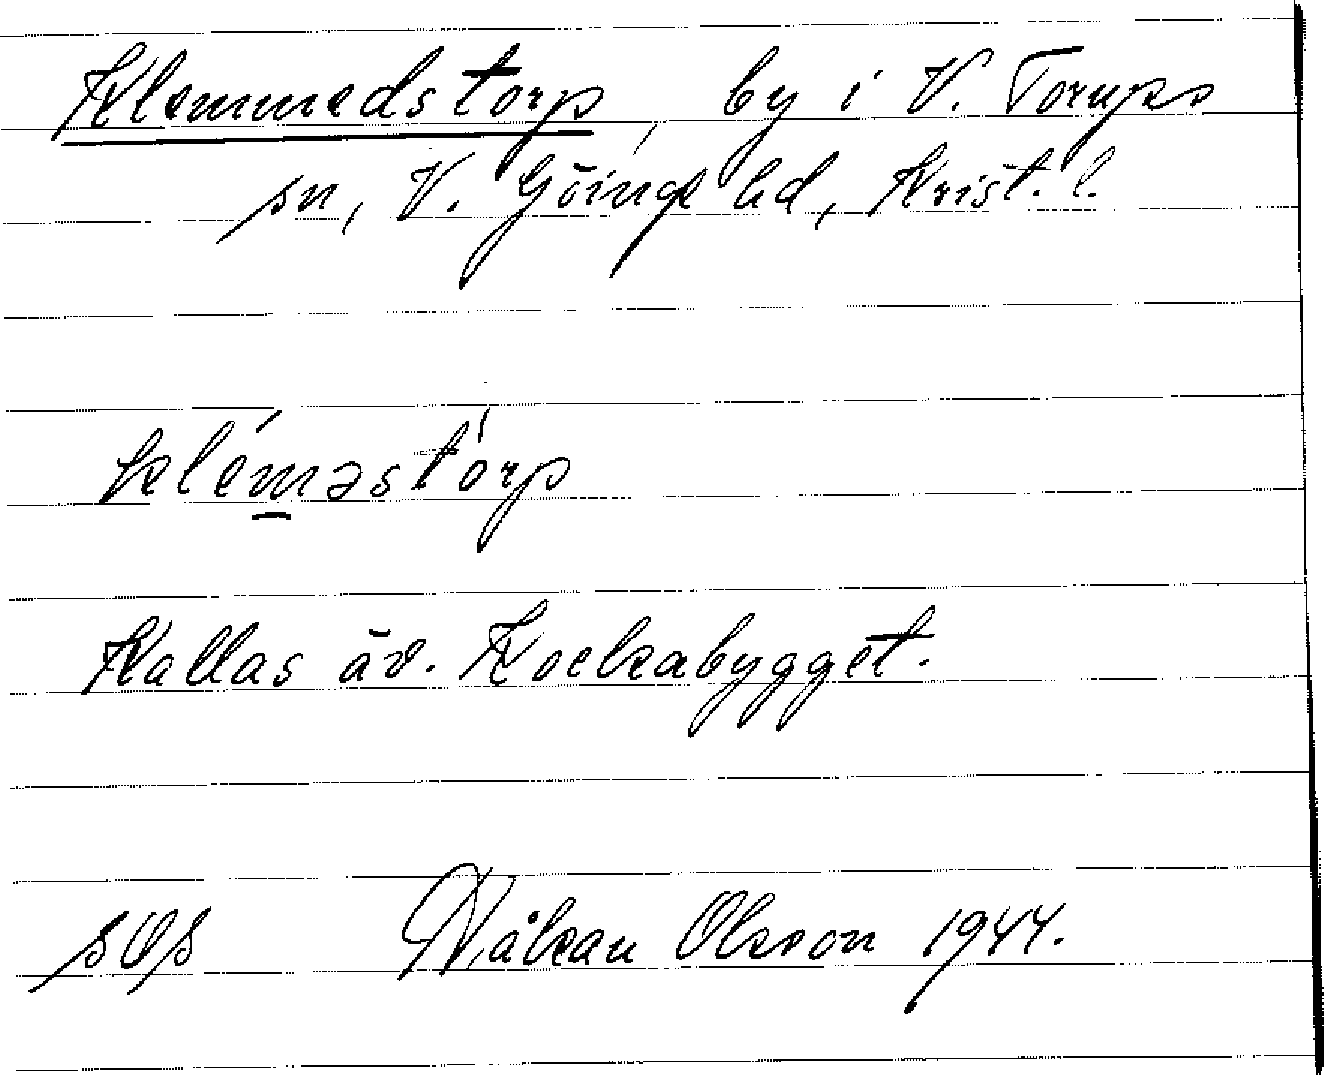 Klemmedstorp, by i V. Torups
sn, V. Göinge hd, Krist. l.
klémastórp
Kallas äv. Kockabygget.
Håkan Olsson 1944.